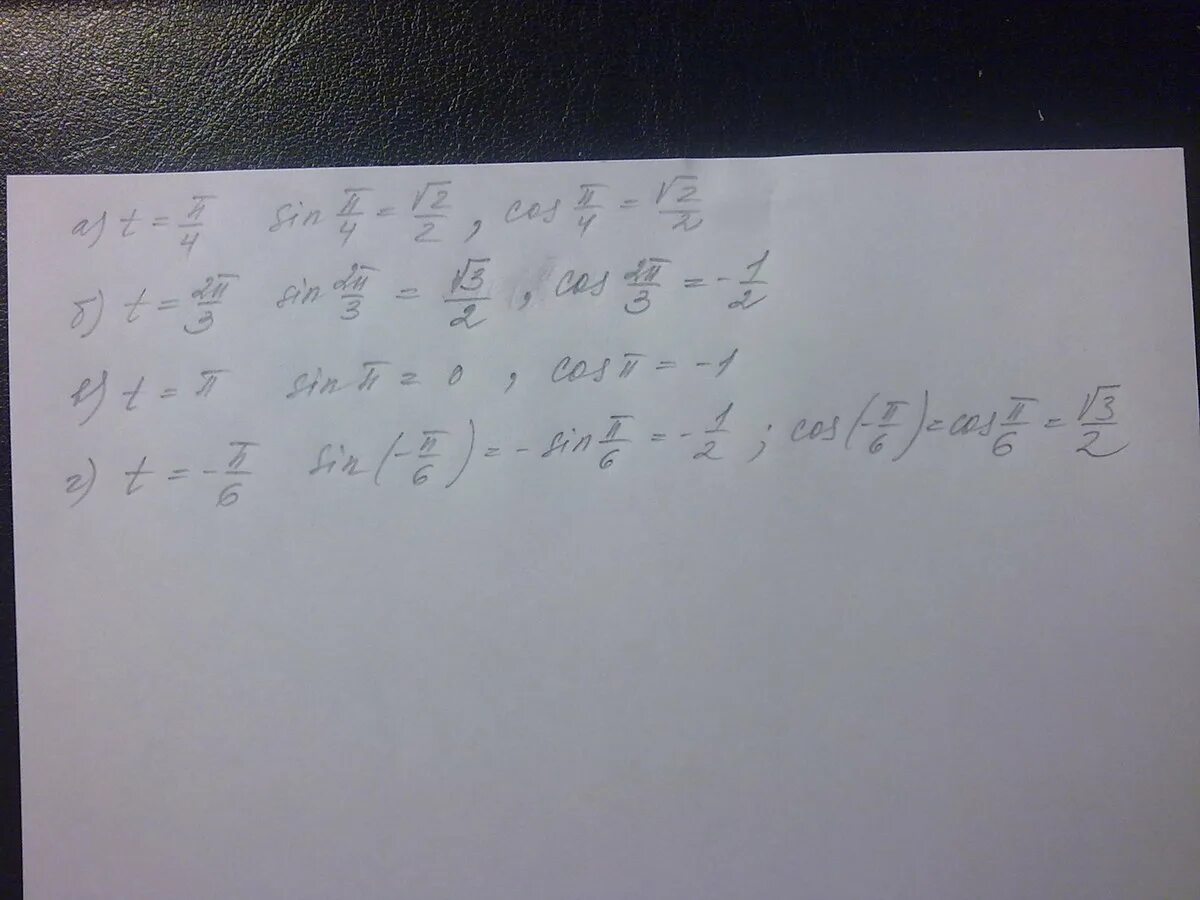 а) t = π/4 sin π/4 = √2/2, cos π/4 = √2/2
б) t = 2π/3 sin 2π/3 = √3/2, cos 2π/3 = -1/2
в) t = π sin π = 0, cos π = -1
г) t = -π/6 sin(-π/6) = -sin π/6 = -1/2; cos(-π/6) = cos π/6 = √3/2